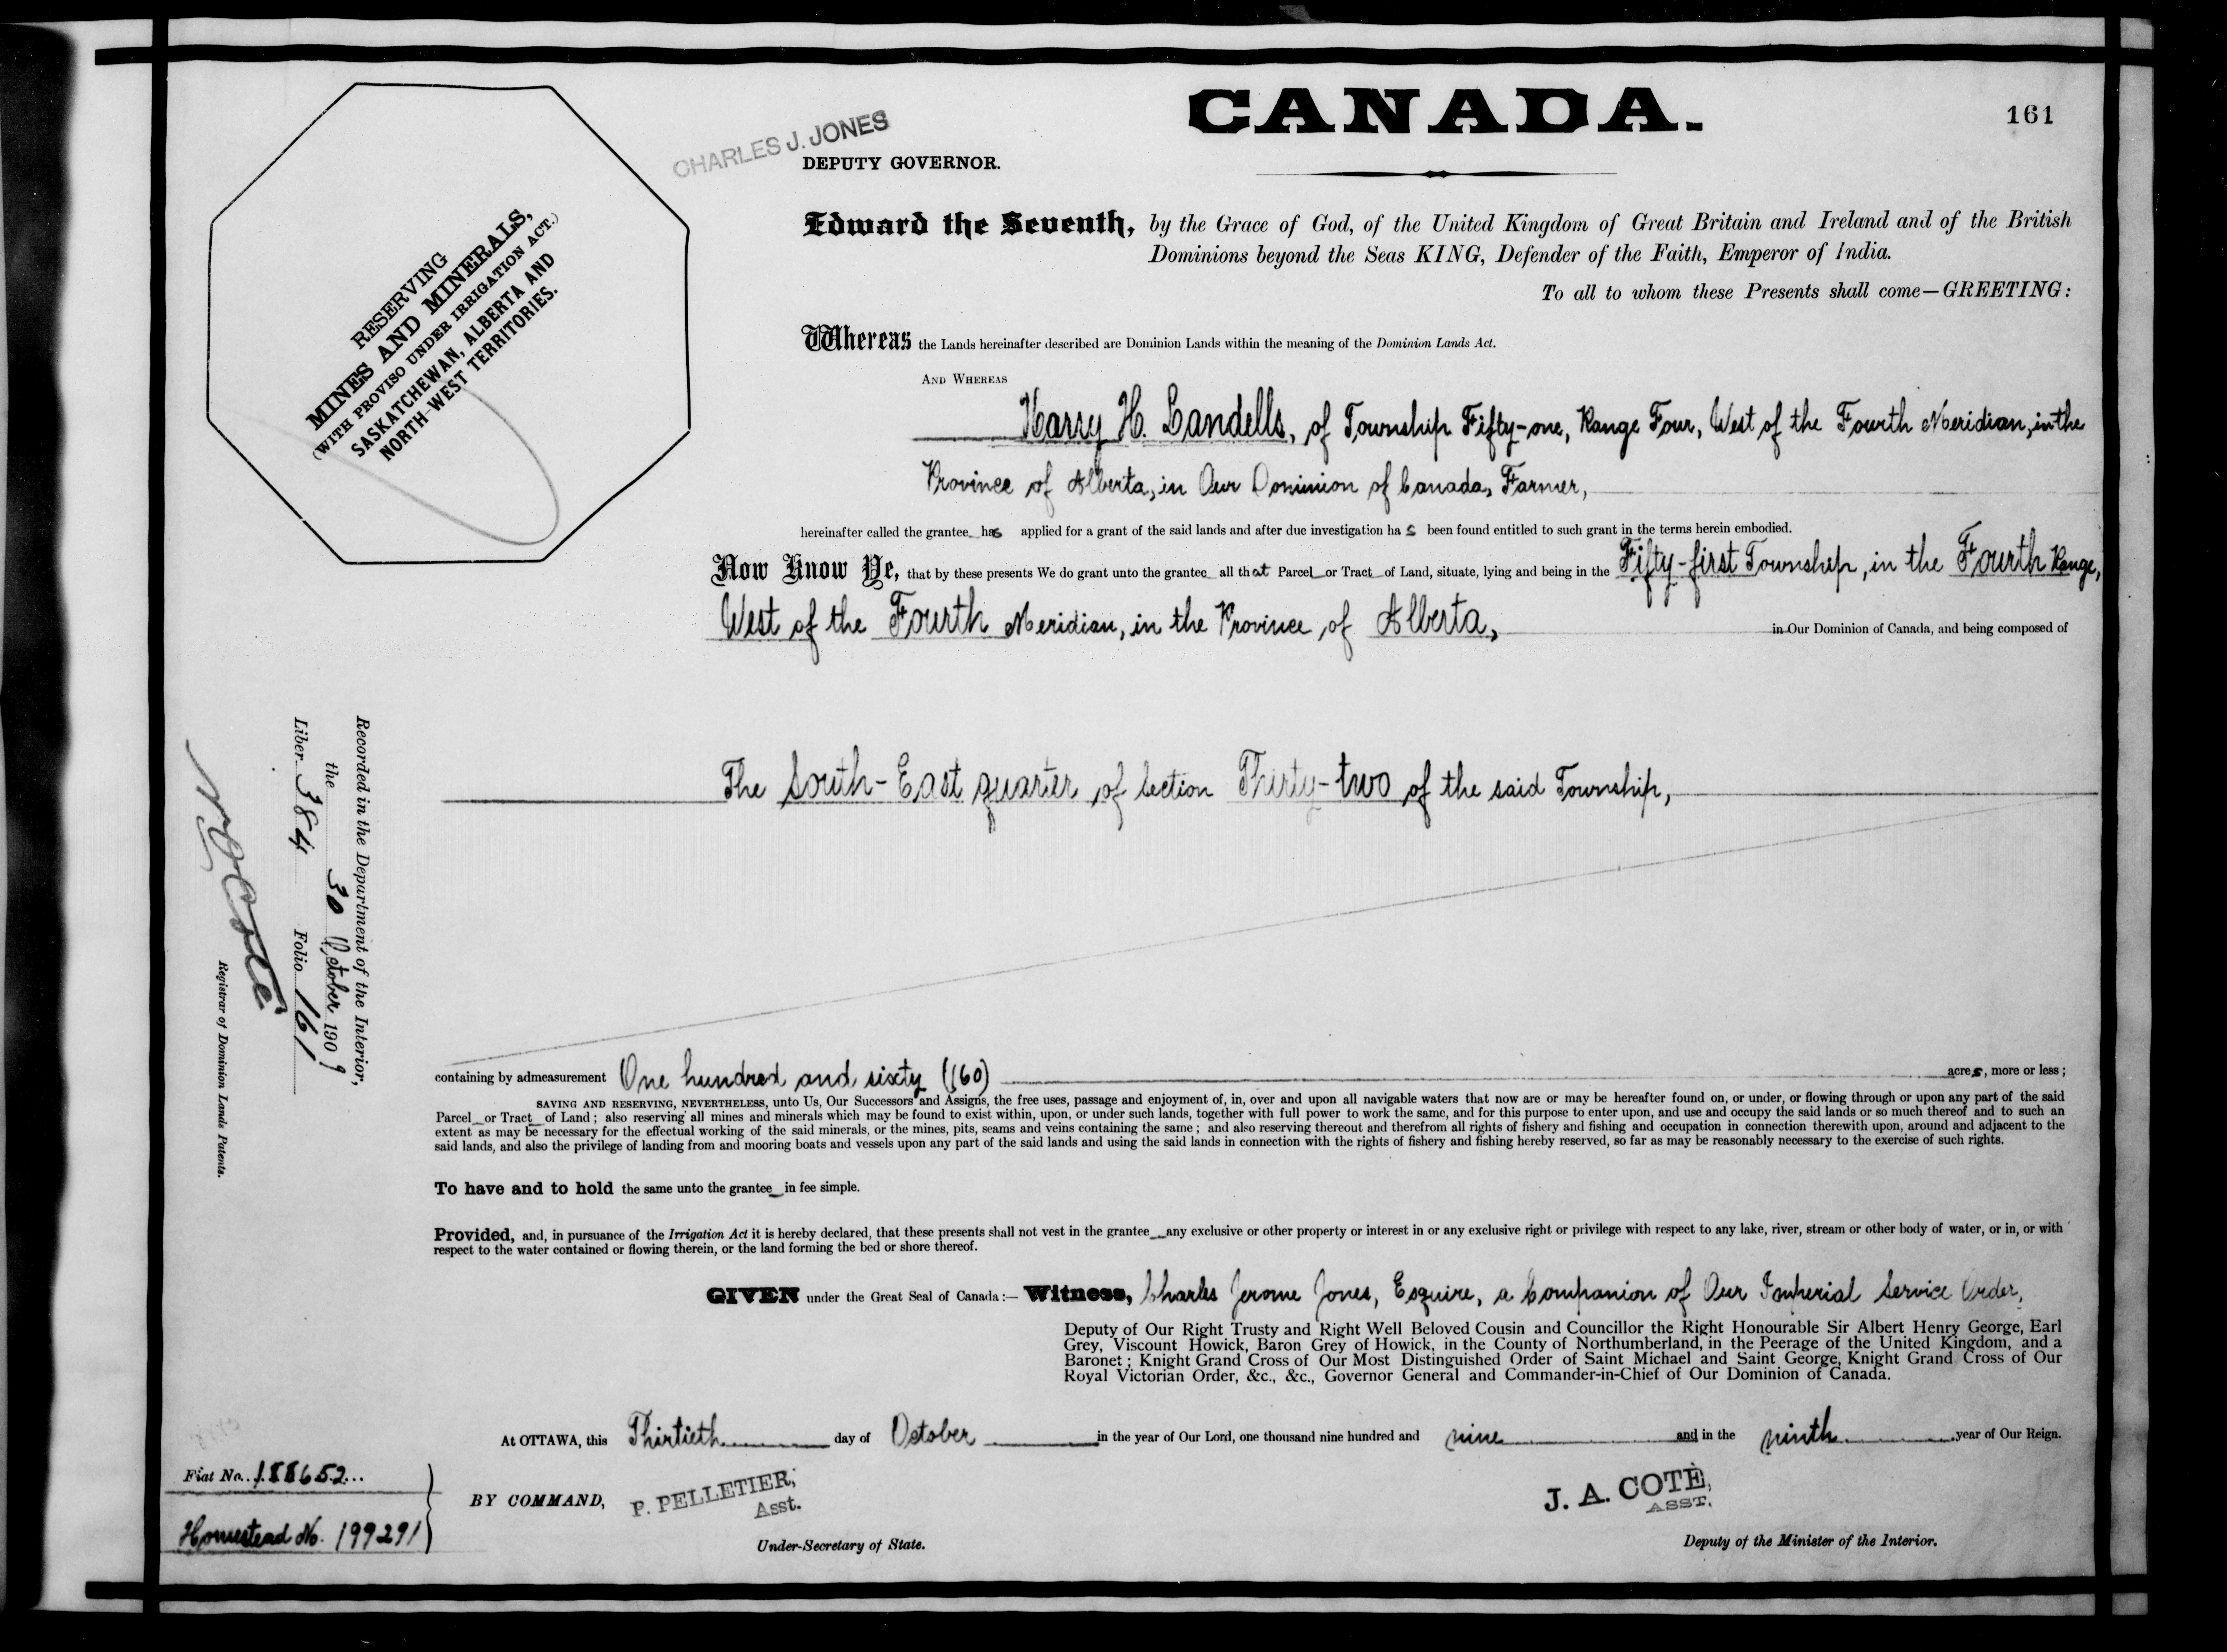 CANADA.
161
CHARLES J. JONES
DEPUTY GOVERNOR.
RESERVING
MINES AND MINERALS,
(WITH PROVISO UNDER IRRIGATION ACT.)
SASKATCHEWAN, ALBERTA AND
NORTH-WEST TERRITORIES.
Edward the Seventh, by the Grace of God, of the United Kingdom of Great Britain and Ireland and of the British
Dominions beyond the Seas KING, Defender of the Faith, Emperor of India.
To all to whom these Presents shall come—GREETING:
Whereas the Lands hereinafter described are Dominion Lands within the meaning of the Dominion Lands Act.
AND WHEREAS
Harry H. Landells, of Township Fifty-one, Range Four, West of the Fourth Meridian, in the
Province of Alberta, in Our Dominion of Canada, Farmer,
hereinafter called the grantee has applied for a grant of the said lands and after due investigation ha s been found entitled to such grant in the terms herein embodied.
Now Know Ye, that by these presents We do grant unto the grantee all that Parcel or Tract of Land, situate, lying and being in the Fifty-first Township, in the Fourth Range,
West of the Fourth Meridian, in the Province of Alberta, in Our Dominion of Canada, and being composed of
The South-East quarter of Section Thirty-two of the said Township,
Recorded in the Department of the Interior,
the 30 October 1909
Liber 384 Folio 161
N O Coté
Registrar of Dominion Lands Patents.
containing by admeasurement One hundred and sixty (160) acres, more or less;
SAVING AND RESERVING, NEVERTHELESS, unto Us, Our Successors and Assigns, the free uses, passage and enjoyment of, in, over and upon all navigable waters that now are or may be hereafter found on, or under, or flowing through or upon any part of the said
Parcel or Tract of Land; also reserving all mines and minerals which may be found to exist within, upon, or under such lands, together with full power to work the same, and for this purpose to enter upon, and use and occupy the said lands or so much thereof and to such an
extent as may be necessary for the effectual working of the said minerals, or the mines, pits, seams and veins containing the same; and also reserving thereout and therefrom all rights of fishery and fishing and occupation in connection therewith upon, around and adjacent to the
said lands, and also the privilege of landing from and mooring boats and vessels upon any part of the said lands and using the said lands in connection with the rights of fishery and fishing hereby reserved, so far as may be reasonably necessary to the exercise of such rights.
To have and to hold the same unto the grantee in fee simple.
Provided, and, in pursuance of the Irrigation Act it is hereby declared, that these presents shall not vest in the grantee any exclusive or other property or interest in or any exclusive right or privilege with respect to any lake, river, stream or other body of water, or in, or with
respect to the water contained or flowing therein, or the land forming the bed or shore thereof.
GIVEN under the Great Seal of Canada:— Witness, Charles Jerome Jones, Esquire, a Companion of Our Imperial Service Order,
Deputy of Our Right Trusty and Right Well Beloved Cousin and Councillor the Right Honourable Sir Albert Henry George, Earl
Grey, Viscount Howick, Baron Grey of Howick, in the County of Northumberland, in the Peerage of the United Kingdom, and a
Baronet; Knight Grand Cross of Our Most Distinguished Order of Saint Michael and Saint George, Knight Grand Cross of Our
Royal Victorian Order, &c., &c., Governor General and Commander-in-Chief of Our Dominion of Canada.
At OTTAWA, this Thirtieth day of October in the year of Our Lord, one thousand nine hundred and nine and in the ninth year of Our Reign.
Fiat No. 188652
Homestead No. 199291
BY COMMAND, P. PELLETIER,
Asst.
Under-Secretary of State.
J. A. COTÈ,
ASST.
Deputy of the Minister of the Interior.